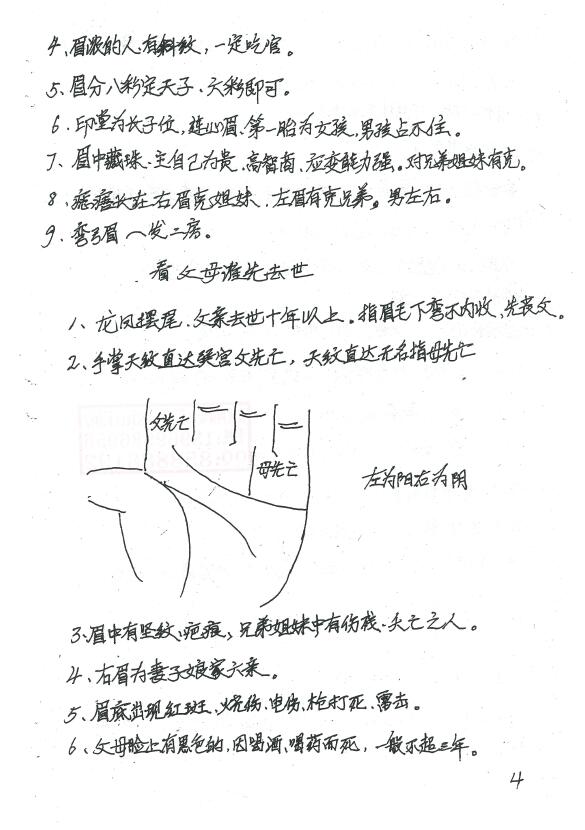 4、眉浓的人有斜纹,一定吃官。
5、眉分八彩定天子、六彩即可。
6、印堂为长子位,连心眉、第一胎为女孩,男孩占不住。
7、眉中藏珠、主自己为贵、高智商、应变能力强。对兄弟姐妹有克。
8、痣痦长在右眉克姐妹、左眉有克兄弟。男左右。
9、弯弓眉一发二房。
看父母谁先去世
1、龙凤摆尾、父亲去世十年以上。指眉毛下弯不内收、先丧父。
2、手掌天纹直达巽宫父先亡,天纹直达无名指母先亡
父先亡
母先亡
左为阳右为阴
3、眉中有竖纹、疤痕、兄弟姐妹中有伤残、夭亡之人。
4、右眉为妻子娘家六亲。
5、眉底出现红斑、烧伤、电伤、枪打死、雷击。
6、父母脸上有黑色的,因喝酒、喝药而死,一般不超三年。
4